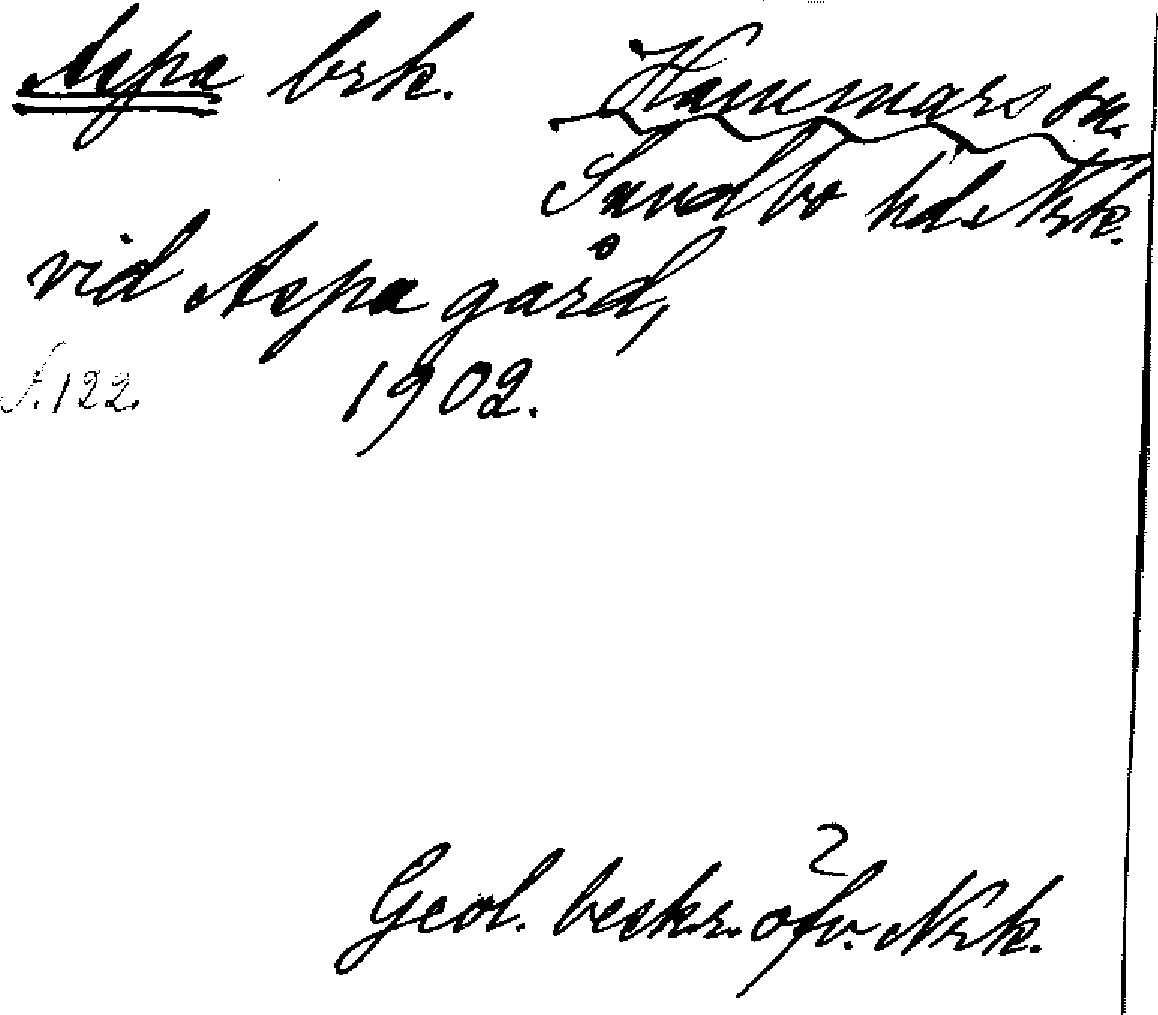 Aspa brk. Hammars sn.
Sundbo hd. Nrk.
vid Aspa gård,
S. 122. 1902.
Geol. beskr. öfv. Nrk.